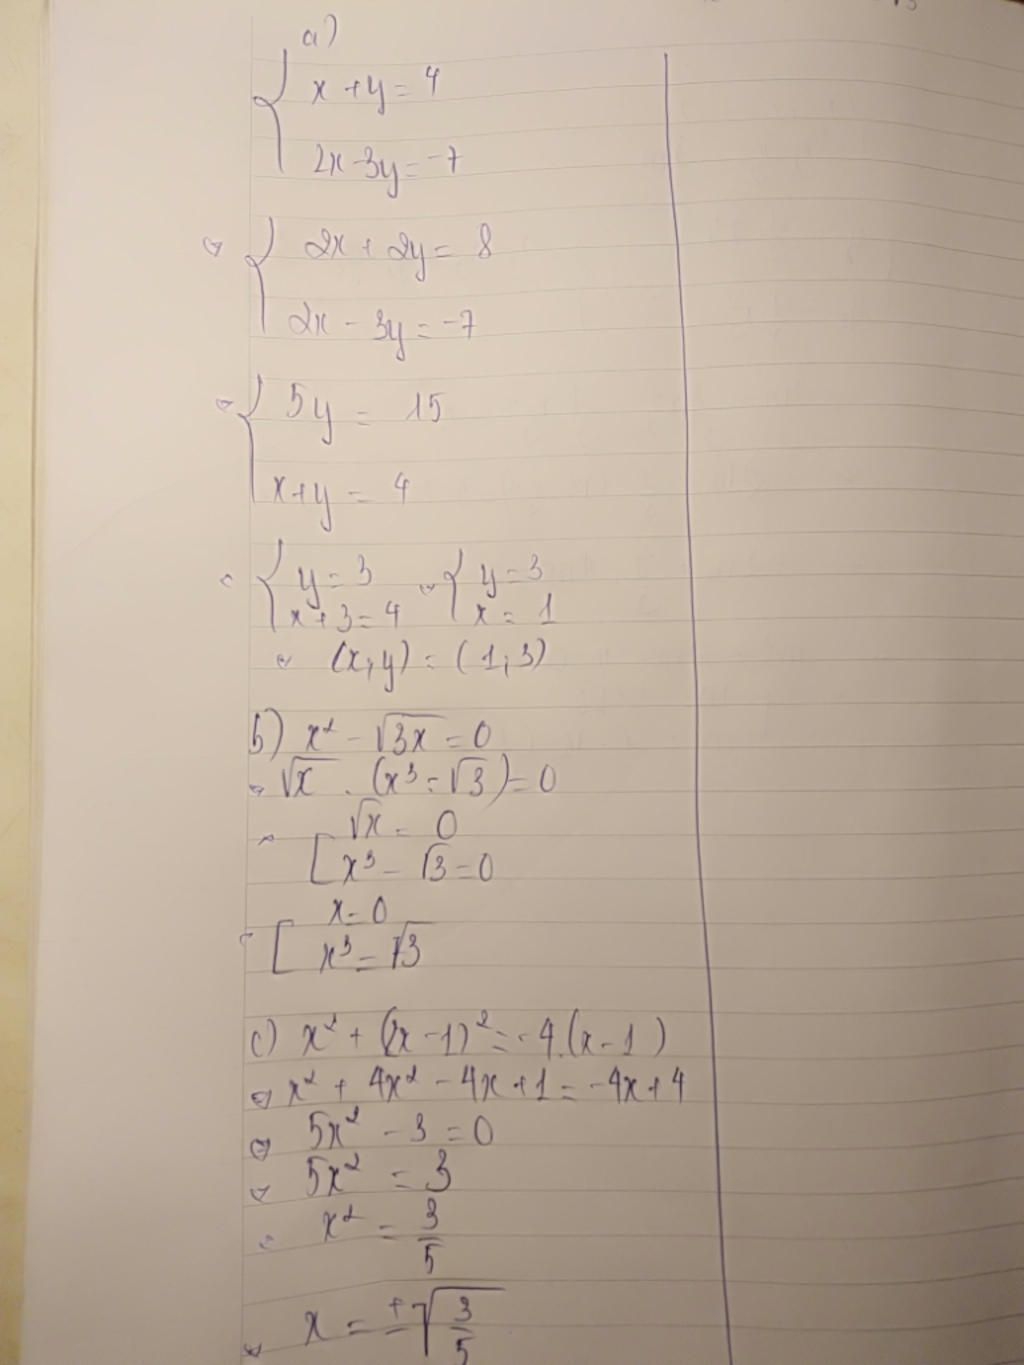 a)
x + y = 4
2x - 3y = -7
⇔ 2x + 2y = 8
2x - 3y = -7
⇔ 5y = 15
x + y = 4
⇔ y = 3 ⇔ y = 3
x + 3 = 4 x = 1
⇔ (x, y) = (1; 3)
b) x² - √3x = 0
⇔ √x . (x³ - √3) = 0
⇔ √x = 0
x³ - √3 = 0
x = 0
⇔ x³ = √3
c) x² + (2x - 1)² = -4.(x - 1)
⇔ x² + 4x² - 4x + 1 = -4x + 4
⇔ 5x² - 3 = 0
⇔ 5x² = 3
⇔ x² = 3/5
⇔ x = ±√(3/5)